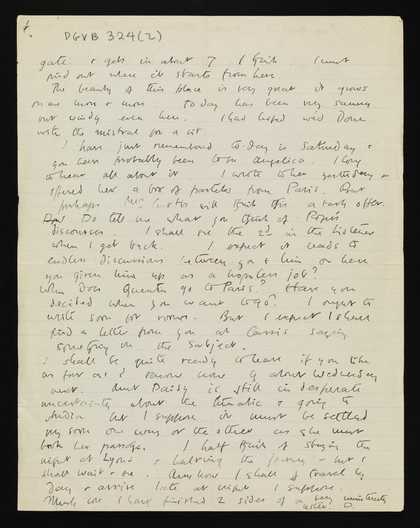 DGVB 324(2)
gate & gets in about 7 I think I must
find out when it starts from here
The beauty of this place is very great it grows
on me more & more To day has been very sunny
but windy even here. I had hoped we'd done
with the mistral for a bit
I have just remembered to-day is Saturday &
you have probably been to see Angelica. I long
to hear all about it I wrote to her yesterday &
offered her a box of from Paris. But
perhaps Mrs Curtis will think this a rash offer.
Do tell me what you think of Roger's
discourses. I shall see the 2nd in the Listener
when I get back. I expect it leads to
endless discussions between you & him or have
you given him up as a hopeless job?
When does Quentin go to Paris? Have you
decided when you want to go? I ought to
write soon for rooms. But I expect I shall
find a letter from you at Cassis saying
something on the subject.
I shall be quite ready to leave if you like
as far as I know now about Wednesday
week. Aunt Daisy is still in desperate
uncertainty about the & going to
India but I suppose it must be settled
very soon one way or the other as she must
book her passage. I half think of staying the
night at Lyons & halving the journey - but I
shall wait & see. Anyhow I shall travel by
day & arrive late at night I suppose.
I have finished 2 sides of a very